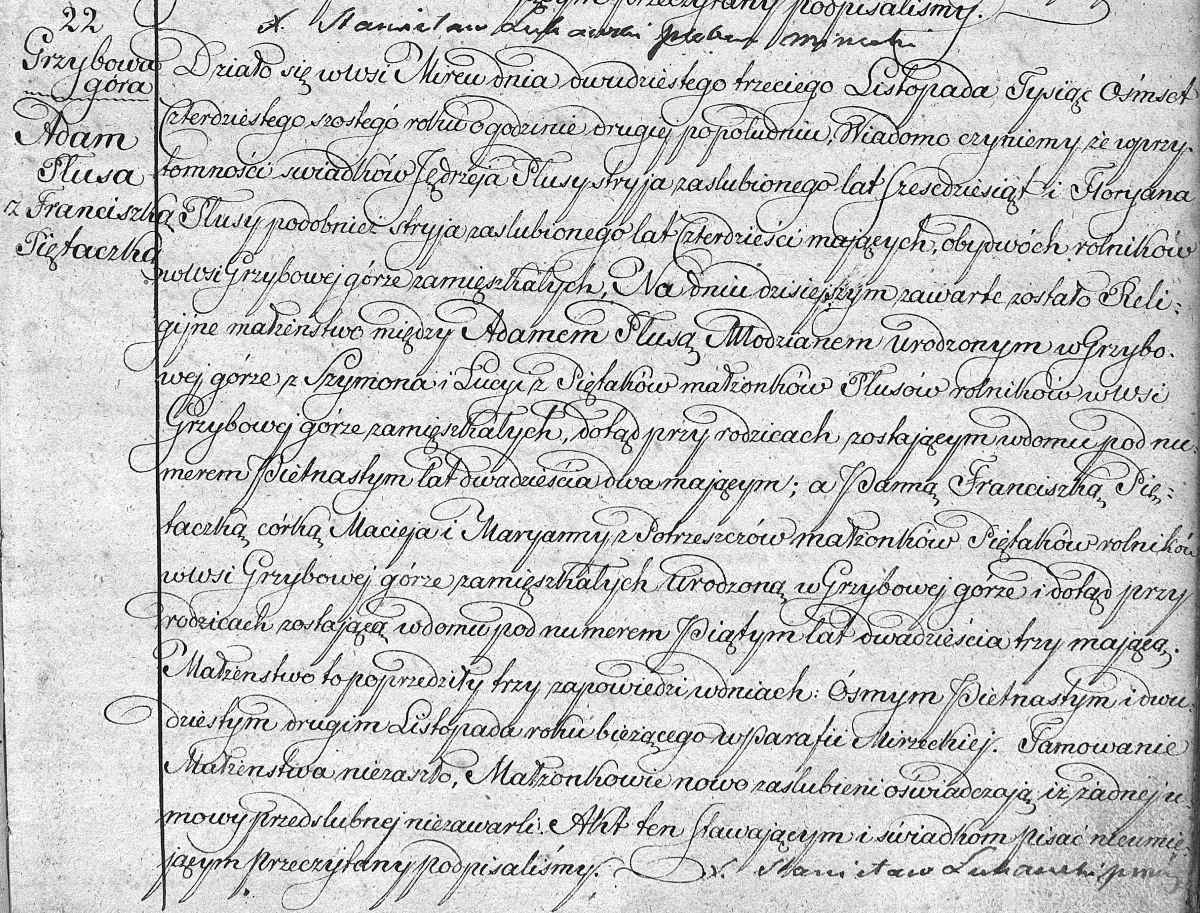 przeczytany podpisaliśmy.
22
X. Stanisław
Grzybowa
góra
Adam
Plusa
z Franciszką
Piętaczką
Działo się w wsi Mircu dnia dwudziestego trzeciego Listopada Tysiąc Ośmset
Czterdziestego szostego roku o godzinie drugiej po południu, Wiadomo czyniemy że w przy-
tomności swiadków Jędrzeja Plusy stryja zaslubionego lat Szesedziesiąt i Floryana
Plusy podobnież stryja zaslubionego lat Czterdzieści mających, obydwóch rolników
w wsi Grzybowej górze zamięszkałych, Na dniu dzisiejszym zawarte zostało Reli-
gijne małżenstwo między Adamem Plusą Młodzianem urodzonym w Grzybo-
wej górze z Szymona i Lucyi z Piętaków małżonków Plusów rolników w wsi
Grzybowej górze zamięszkałych, dotąd przy rodzicach zostającym w domu pod nu-
merem Pietnastym lat dwadzieścia dwa mającym; a Panną Franciszką Pię-
taczką córką Macieja i Maryanny z Potrzeszczów małżonków Piętaków rolników
w wsi Grzybowej górze zamięszkałych urodzoną w Grzybowej górze i dotąd przy
rodzicach zostającą w domu pod numerem Piątym lat dwadzieścia trzy mającą.
Małżenstwo to poprzedziły trzy zapowiedzi w dniach: Ósmym Pietnastym i dwu-
dziestym drugim Listopada roku bieżącego w Parafii Mirzeckiej. Tamowanie
Małżenstwa niezaszło, Małżonkowie nowo zaslubieni oświadczają iż żadnej u-
mowy przedslubnej niezawarli. Akt ten stawającym i swiadkom pisać nieumie-
jącym przeczytany podpisaliśmy. X. Stanisław